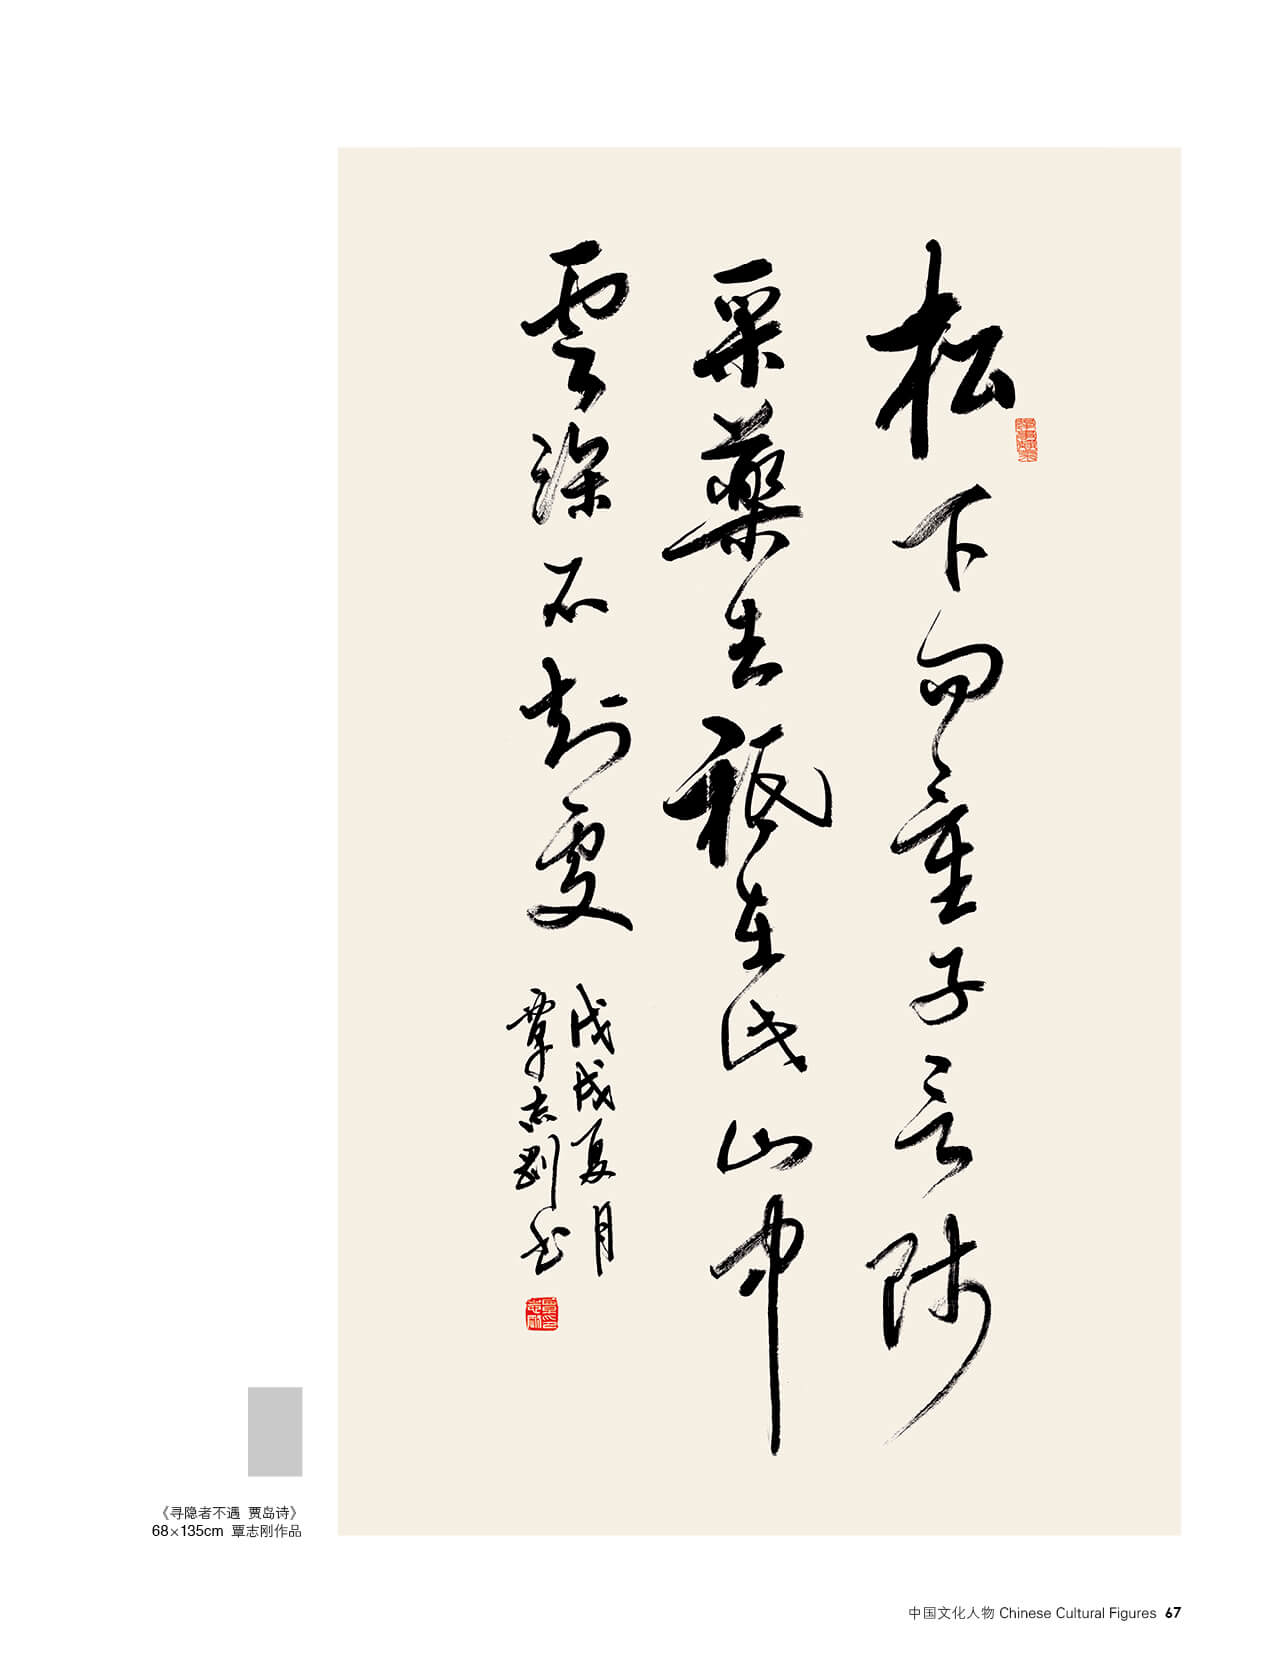 松下問童子言師
采藥去祇在此山中
雲深不知處
戊戌夏月
覃志剛書
《寻隐者不遇 贾岛诗》
68×135cm 覃志刚作品
中国文化人物 Chinese Cultural Figures 67